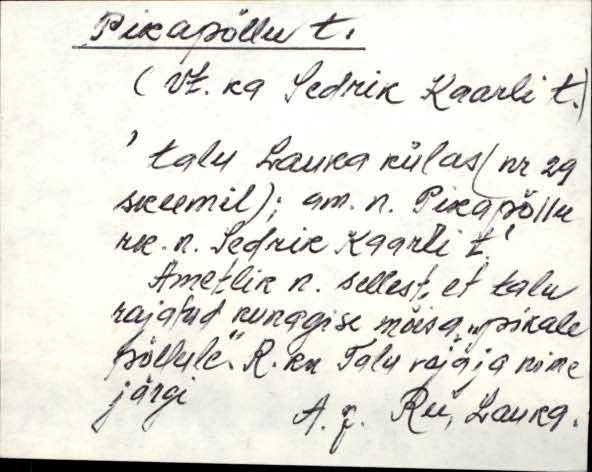 Pikapõllu t.
(Vt. ka Sedrik Kaarli t.)
' talu Lauka külas (nr 29
skeemil); am. n. Pikapõllu
rk. n. Sedrik Kaarli t.'
Ametlik n. sellest, et talu
rajatud kunagise mõisa „pikale
põllule". R. kn Talu rajaja nime
järgi
A. J. Rei, Lauka.